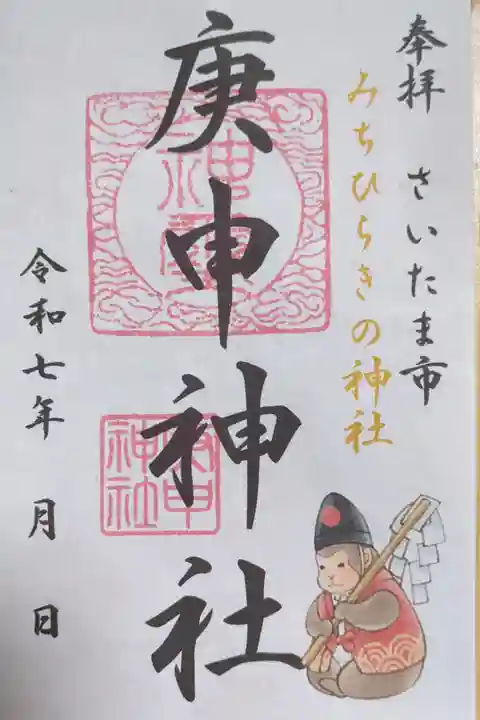 奉拝 さいたま市
みちひらきの神社
庚申神社
神璽
庚申神社
令和七年 月 日